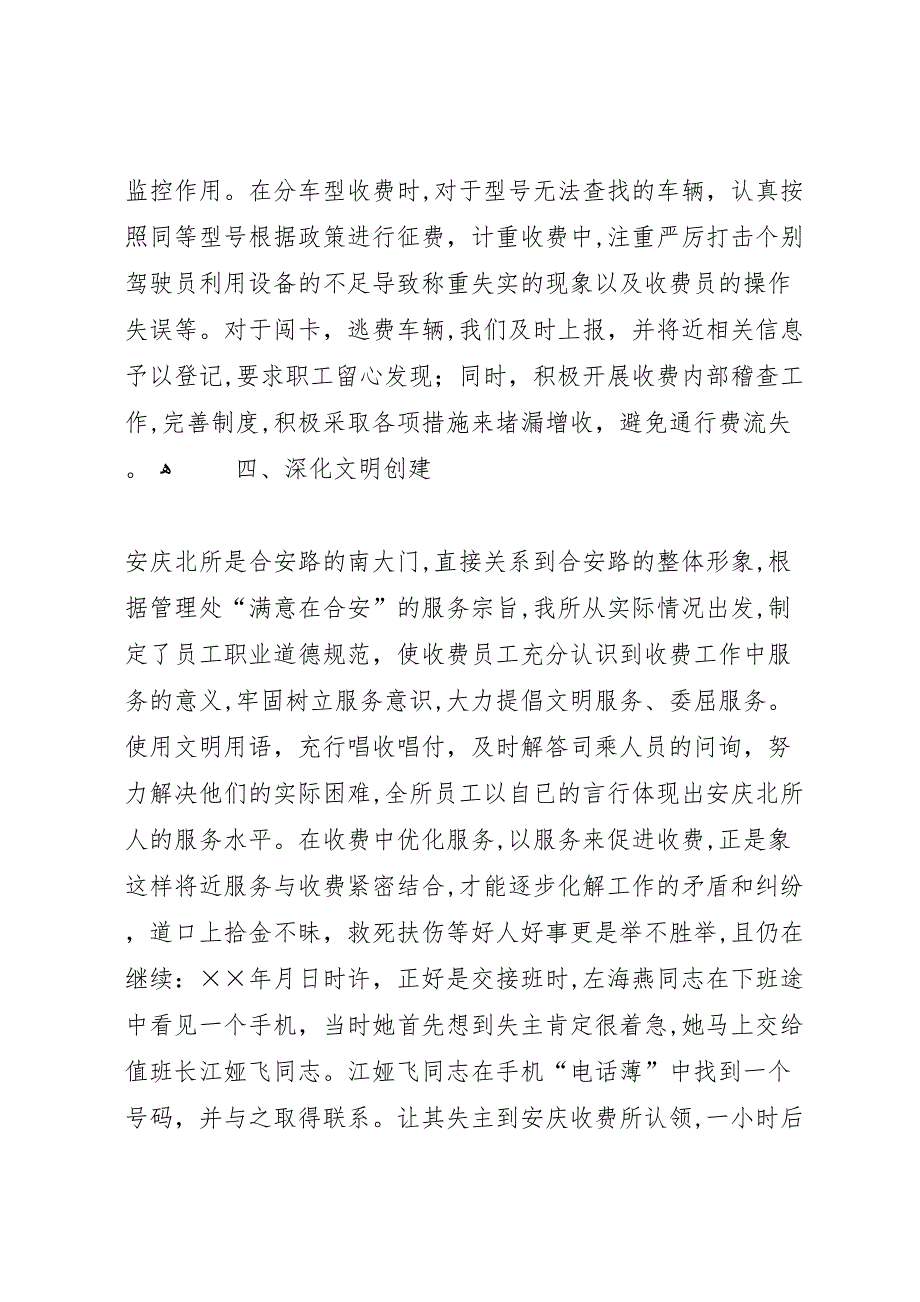 监控作用。在分车型收费时,对于型号无法查找的车辆，认真按
照同等型号根据政策进行征费，计重收费中,注重严厉打击个别
驾驶员利用设备的不足导致称重失实的现象以及收费员的操作
失误等。对于闯卡，逃费车辆,我们及时上报，并将近相关信息
予以登记,要求职工留心发现；同时，积极开展收费内部稽查工
作,完善制度,积极采取各项措施来堵漏增收，避免通行费流失
。 ﻫ 四、深化文明创建
安庆北所是合安路的南大门,直接关系到合安路的整体形象,根
据管理处“满意在合安”的服务宗旨,我所从实际情况出发,制
定了员工职业道德规范，使收费员工充分认识到收费工作中服
务的意义,牢固树立服务意识,大力提倡文明服务、委屈服务。
使用文明用语，充行唱收唱付，及时解答司乘人员的问询，努
力解决他们的实际困难,全所员工以自已的言行体现出安庆北所
人的服务水平。在收费中优化服务,以服务来促进收费,正是象
这样将近服务与收费紧密结合,才能逐步化解工作的矛盾和纠纷
，道口上拾金不昧，救死扶伤等好人好事更是举不胜举,且仍在
继续：××年月日时许，正好是交接班时,左海燕同志在下班途
中看见一个手机，当时她首先想到失主肯定很着急,她马上交给
值班长江娅飞同志。江娅飞同志在手机“电话薄”中找到一个
号码，并与之取得联系。让其失主到安庆收费所认领,一小时后